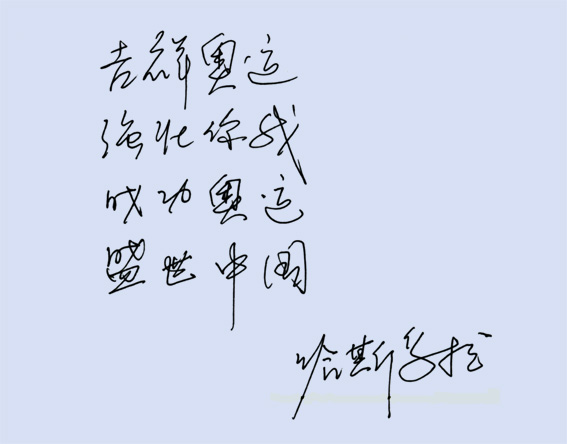 吉祥奥运
强壮你我
成功奥运
盛世中国
哈斯